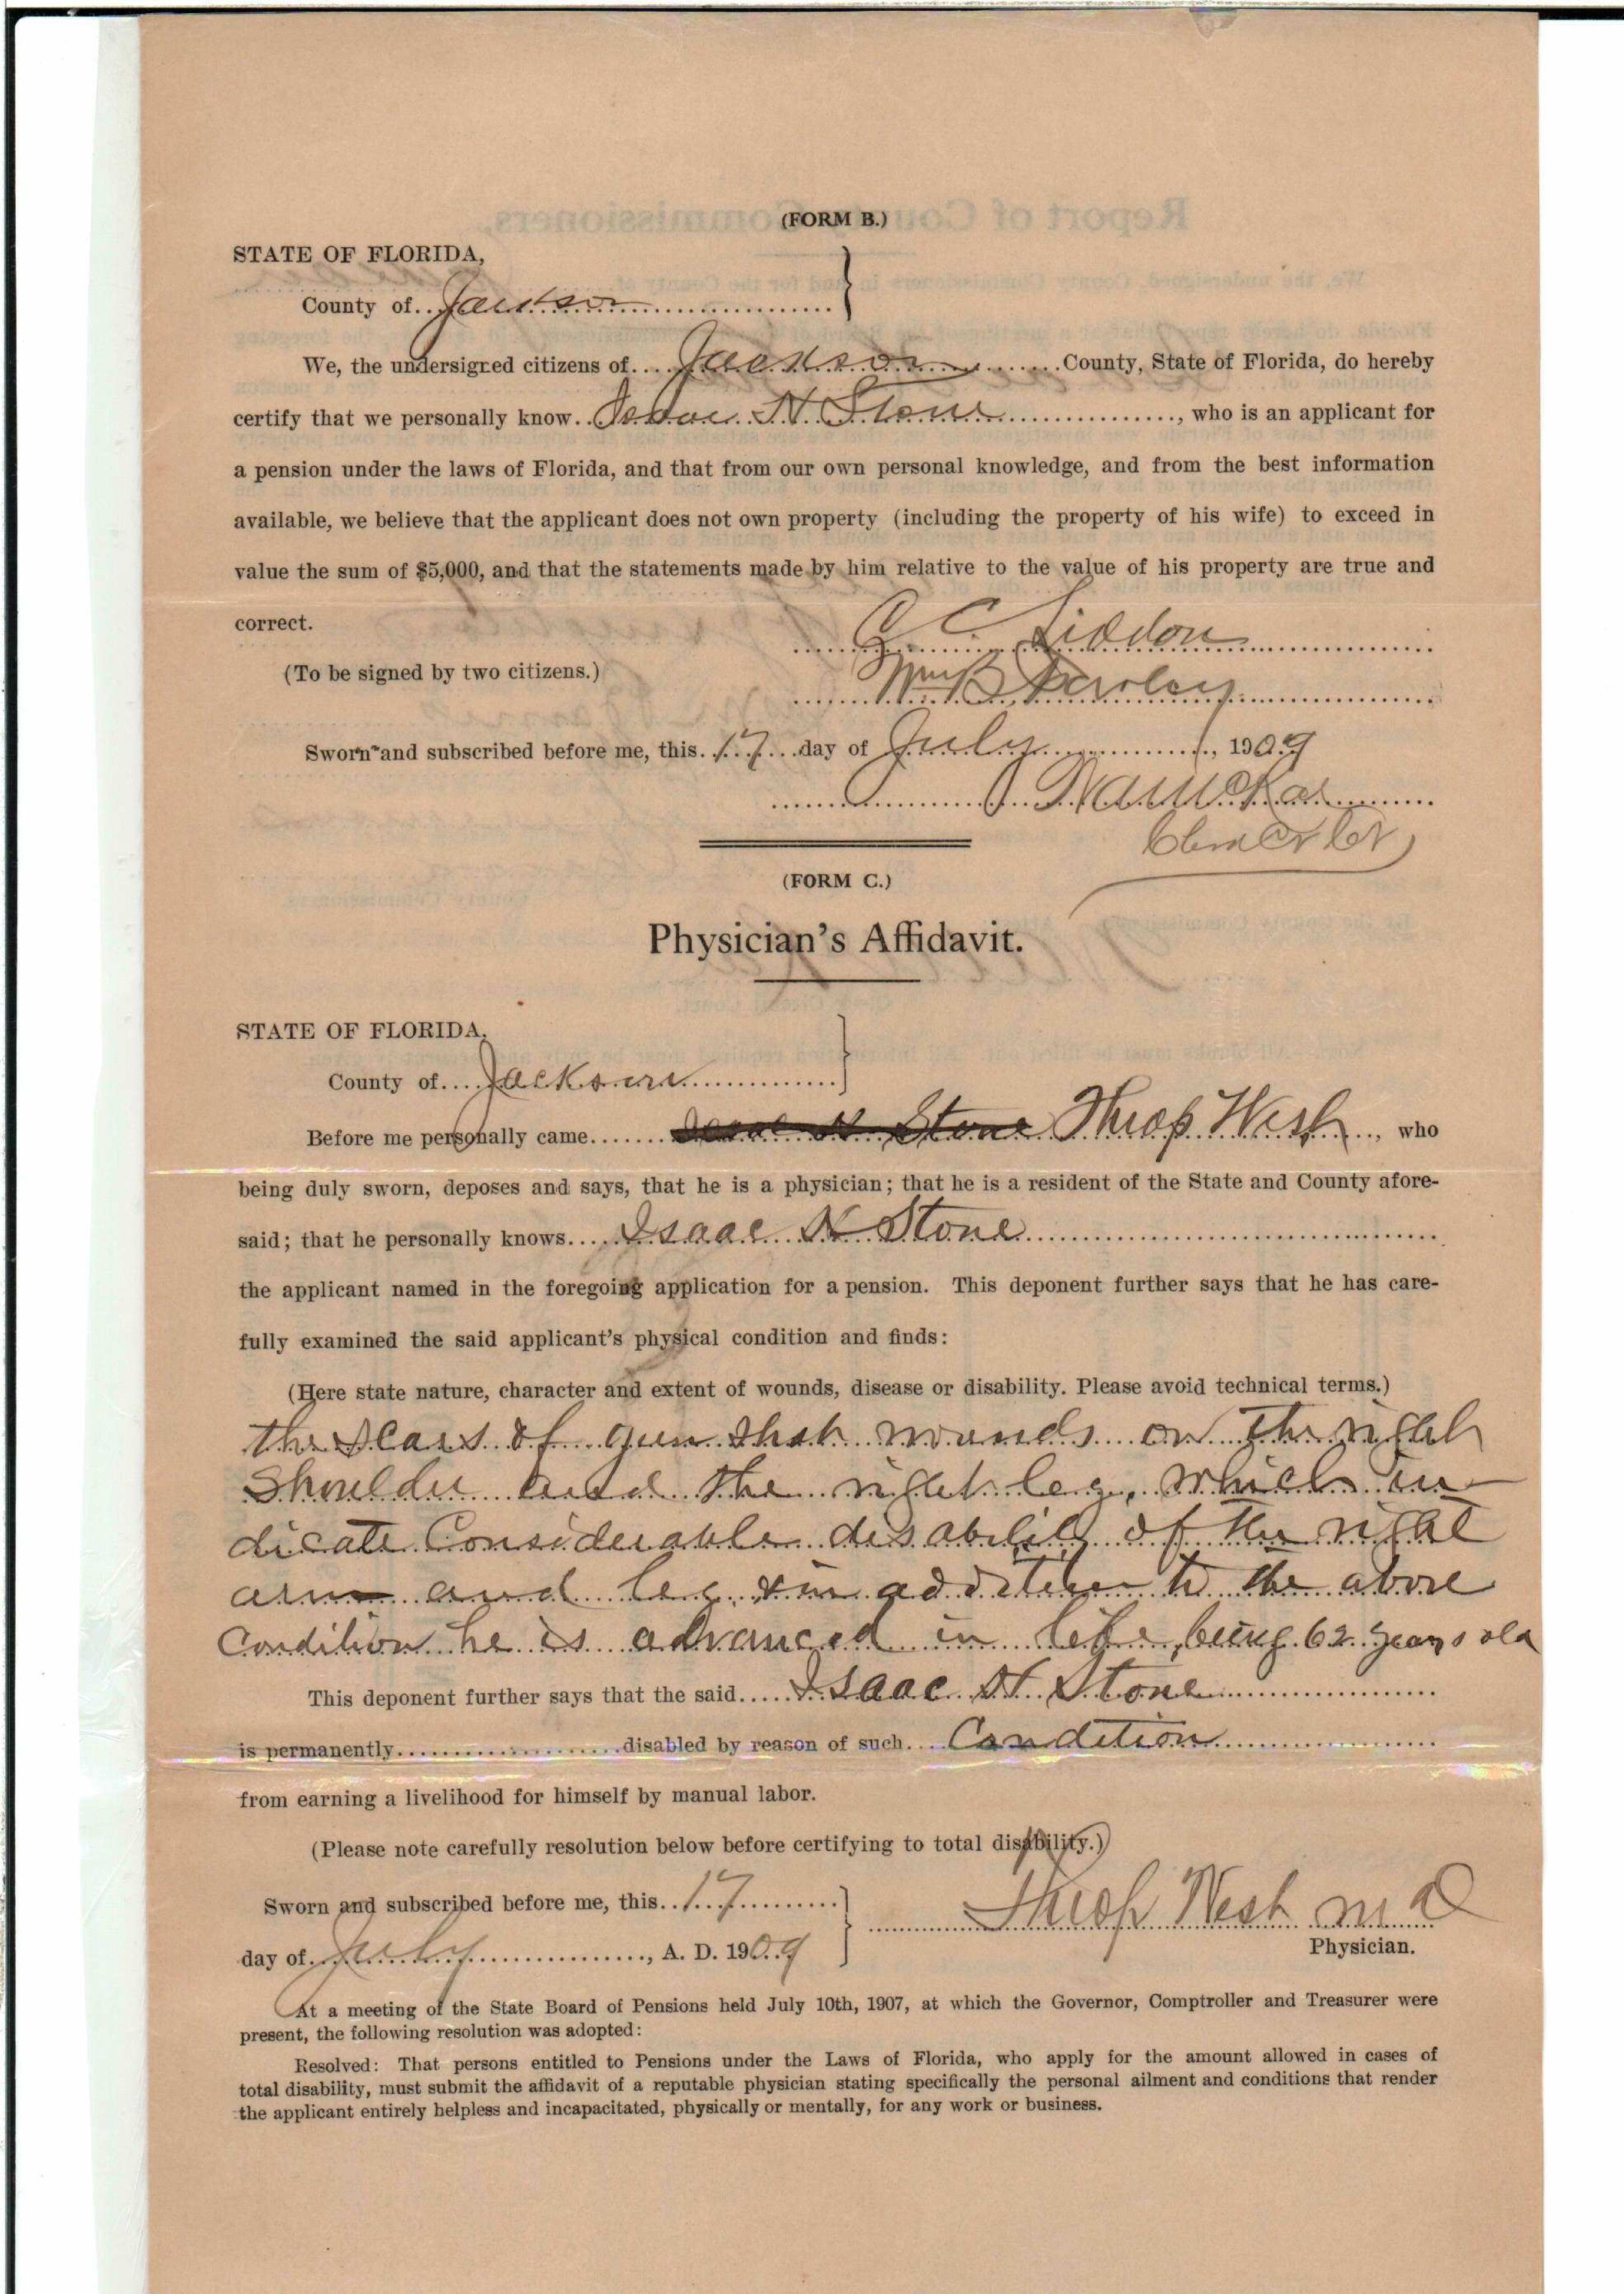 (FORM B.)
STATE OF FLORIDA,
County of Jackson
We, the undersigned citizens of Jackson County, State of Florida, do hereby
certify that we personally know Isaac N. Stone, who is an applicant for
a pension under the laws of Florida, and that from our own personal knowledge, and from the best information
available, we believe that the applicant does not own property (including the property of his wife) to exceed in
value the sum of $5,000, and that the statements made by him relative to the value of his property are true and
correct.
C C Liddon
(To be signed by two citizens.)
Wm B Farley
Sworn and subscribed before me, this 17 day of July, 1909
(FORM C.)
Physician's Affidavit.
STATE OF FLORIDA,
County of Jackson
Before me personally came Isaac N Stone Theop West, who
being duly sworn, deposes and says, that he is a physician; that he is a resident of the State and County afore-
said; that he personally knows Isaac N Stone
the applicant named in the foregoing application for a pension. This deponent further says that he has care-
fully examined the said applicant's physical condition and finds:
(Here state nature, character and extent of wounds, disease or disability. Please avoid technical terms.)
the scars of gun shot wounds on the right
shoulder and the right leg, which in-
dicate Considerable disability of the right
arm and leg & in addition to the above
Condition he is advanced in life, being 62 years old
This deponent further says that the said Isaac N. Stone
is permanently disabled by reason of such Condition
from earning a livelihood for himself by manual labor.
(Please note carefully resolution below before certifying to total disability.)
Sworn and subscribed before me, this 17
Theop West M D
day of July, A. D. 1909
Physician.
At a meeting of the State Board of Pensions held July 10th, 1907, at which the Governor, Comptroller and Treasurer were
present, the following resolution was adopted:
Resolved: That persons entitled to Pensions under the Laws of Florida, who apply for the amount allowed in cases of
total disability, must submit the affidavit of a reputable physician stating specifically the personal ailment and conditions that render
the applicant entirely helpless and incapacitated, physically or mentally, for any work or business.